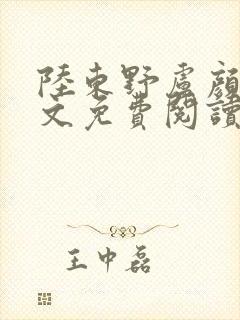 陸東野盧顔
文免費閱讀
王中磊